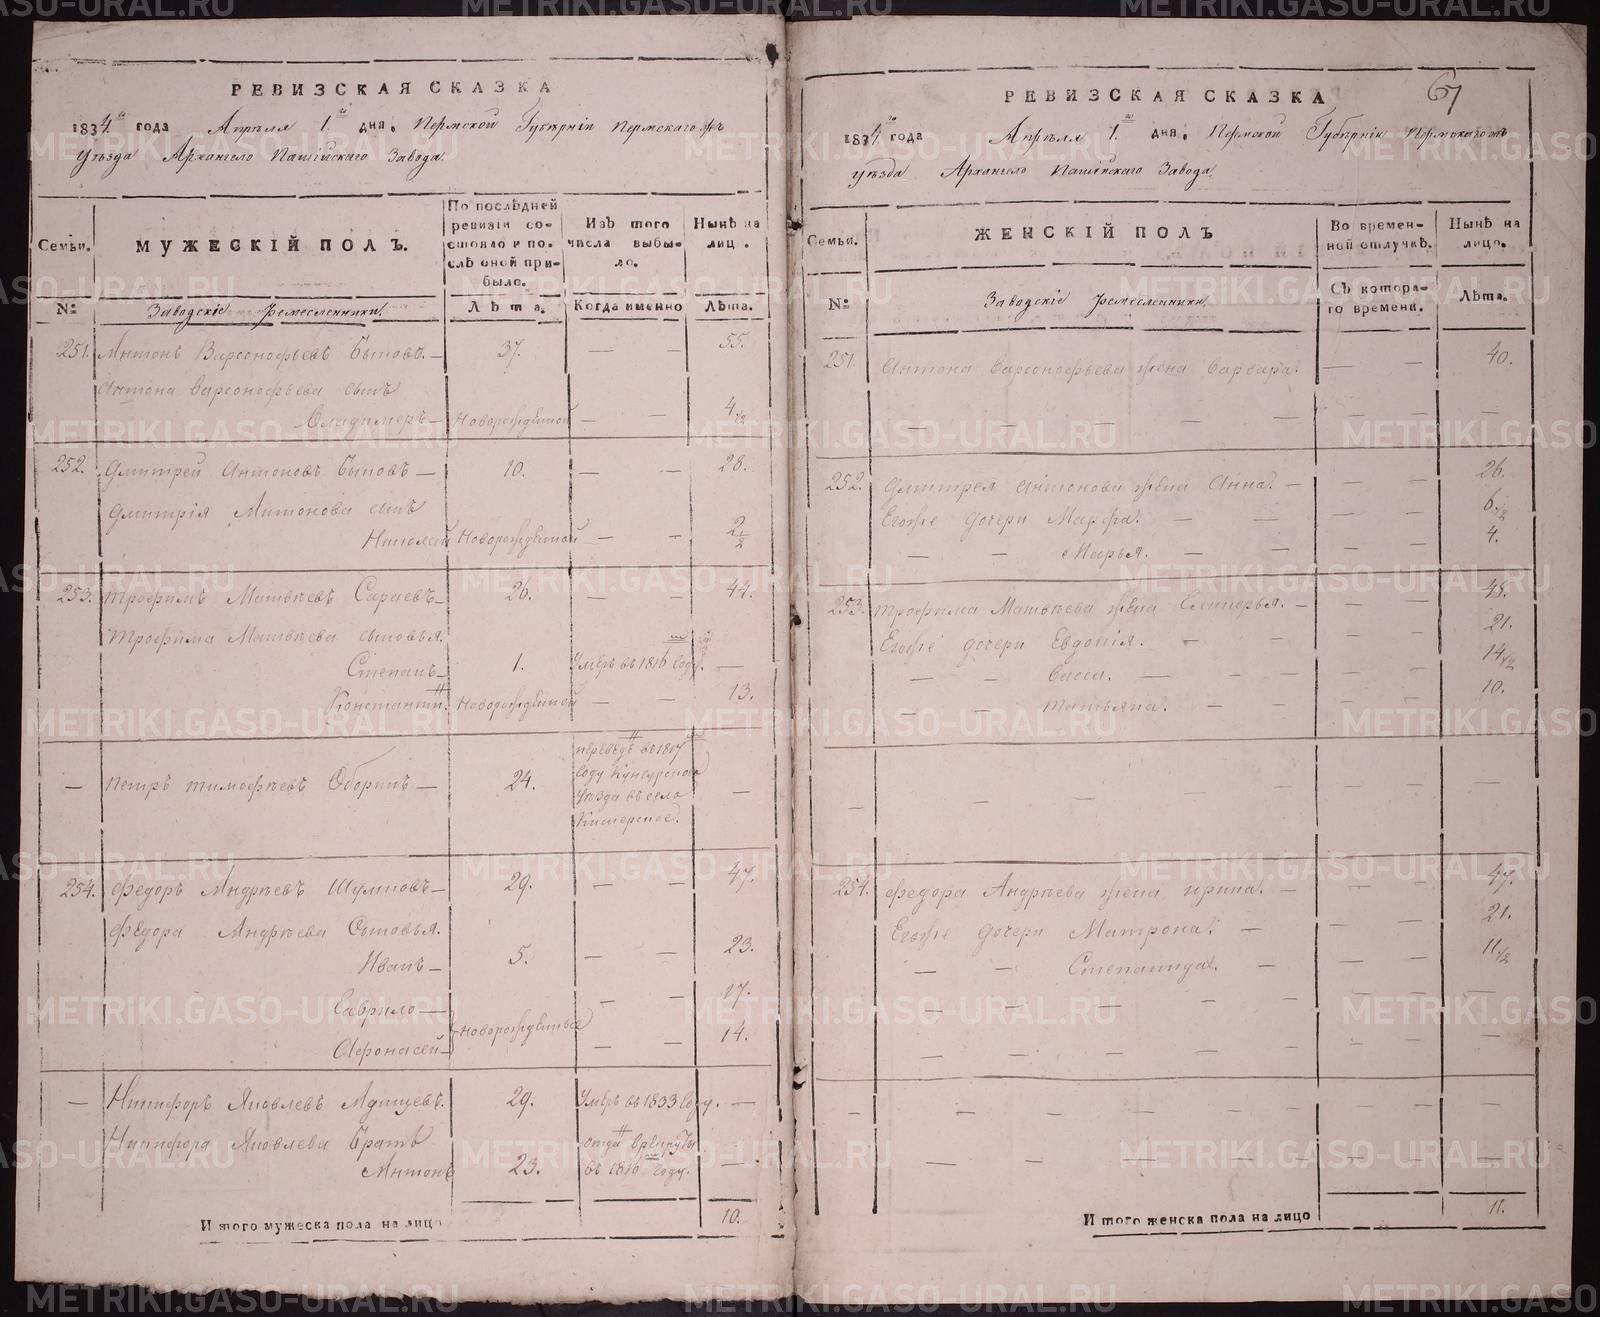 РЕВИЗСКАЯ СКАЗКА
1834 го года Апрѣля 1. дня. Пермской Губѣрніи Пермскагожъ
Уѣзда Архангело Пашійскаго Завода
Семьи.
МУЖЕСКІЙ ПОЛЪ.
По послѣдней ревизіи состояло и послѣ оной прибыло.
Изъ того числа выбыло.
Нынѣ на лиц.
№
Заводскіе Ремесленники.
Лѣта.
Когда именно
Лѣта.
251. Антонъ Варсонофьевъ Бытовъ. — 37. — — 55.
Антона Варсонофьева сынъ
Владимеръ — Новорожденной — — 4 1/2
252. Дмитрей Антоновъ Бытовъ — 10. — — 28.
Дмитрія Антонова сынъ
Николай Новорожденной — — 2 1/2
253. Трофимъ Матвѣевъ Сараевъ — 26. — — 44.
Трофима Матвѣева сыновья.
Степанъ — 1. Умеръ въ 1816 году. —
Константи. Новорожденной — — 13.
— Петръ Тимофѣевъ Оборинъ — 24. переведе въ 1817
году Кунгурскаго
Уѣзда въ село
—
254. Федоръ Андрѣевъ — 29. — — 47.
Федора Андрѣева Сыновья.
Иванъ — 5. — — 23.
Гаврило — — — 17.
Афонасей — Новорожденные — — 14.
— Никифоръ Яковлевъ 29. Умеръ въ 1833 году. —
Никифора Яковлева Братъ
Антонъ 23. отда в рекруты
въ 1816 году. —
И того мужеска пола на лицо 10.
67
РЕВИЗСКАЯ СКАЗКА
1834 го года Апрѣля 1. дня. Пермской Губѣрніи Пермскагожъ
уѣзда Архангело Пашійскаго Завода
Семьи.
ЖЕНСКІЙ ПОЛЪ
Во временной отлучкѣ.
Нынѣ на лицо.
№
Заводскіе Ремесленники
Съ котораго времени.
Лѣта.
251. Антона Варсонофьева жена Варвара. — — 40.
— — — — — — —
252. Дмитрея Антонова жена Анна. — — — 26.
Егоже дочери Марфа. — — — 6 1/2
— — Марья. — — — 4.
253. Трофима Матвѣева жена — — — 48.
Егоже дочери Евдокія. — — — 21.
— — Васса. — — — 14 1/2
— — Татьяна. — — — 10.
— — — — — — — —
254. Федора Андрѣева жена Ирина. — — — 47.
Егоже дочери Матрона. — — — 21.
— — Степанида. — — — 11 1/2
— — — — — — — —
— — — — — — — —
— — — — — — — —
— — — — — — — —
И того женска пола на лицо 11.
METRIKI.GASO-URAL.RU